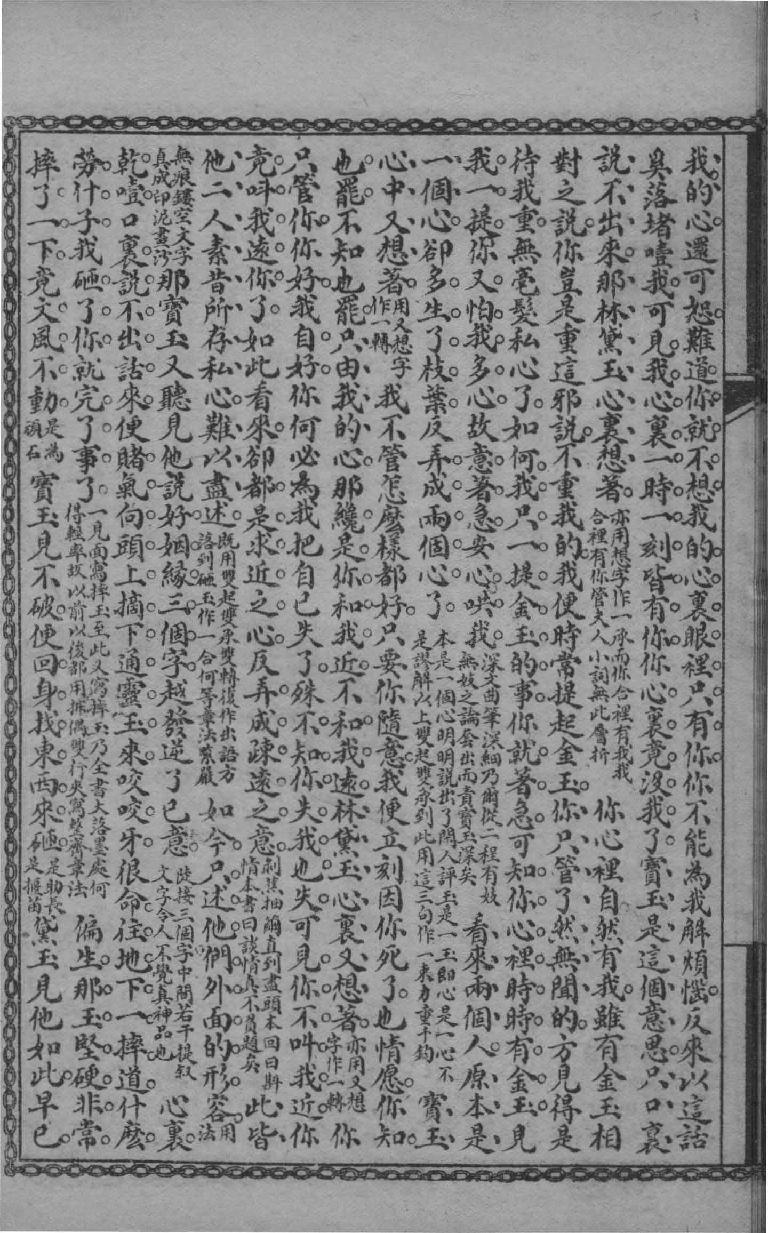 我的心還可恕難道你就不想我的心裏眼裡只有你你不能為我解煩惱反來以這話
奚落堵噎我可見我心裏一時一刻皆有你你心裏竟沒我了寶玉是這個意思只口裏
說不出來那林黛玉心裏想著亦用想字作一承而你合裡有我我合裡有你管夫人小詞無此疊折你心裡自然有我雖有金玉相
對之說你豈是重這邪說不重我的我便時常提起金玉你只管了然無聞的方見得是
待我重無毫髮私心了如何我只一提金玉的事你就著急可知你心裡時時有金玉見
我一提你又怕我多心故意著急安心哄我深文曲筆深細乃爾從二程有妓無妓之論套出而責寶玉深矣看來兩個人原本是
一個心卻多生了枝葉反弄成兩個心了本是一個心明明說出了閱人評玉是一玉卽心是一心不是謬解以上雙起雙承到此用這三句作一束力重千鈞寶玉
心中又想著用又想字作一轉我不管怎麼樣都好只要你隨意我便立刻因你死了也情愿你知
也罷不知也罷只由我的心那纔是你和我近不和我遠林黛玉心裏又想著亦用又想字作一轉你
只管你你好我自好你何必為我把自己失了殊不知你失我也失可見你不叫我近你
竟叫我遠你了如此看來卻都是求近之心反弄成疎遠之意剝蕉抽繭直到盡頭本回曰斟情本書曰談情真不負題矣此皆
他二人素昔所存私心難以盡述既用雙起雙承雙轉復作出語方語到砸玉作一合何等章法緊嚴如今只述他們外面的形容用法
無痕鏤空文字真成印泥畫沙那寶玉又聽見他說好姻緣三個字越發逆了己意陡接三個字中間若干提叙文字令人不覺真神品也心裏
乾噎口裏說不出話來便賭氣向頭上摘下通靈玉來咬咬牙很命往地下一摔道什麼
勞什子我砸了你就完了事了一見面寫摔玉至此又寫摔玉乃全書大落墨處何得輕率故以前以後都用排偶雙行夾寫整齊章法偏生那玉堅硬非常
摔了一下竟文風不動是為頑石寶玉見不破便回身找東西來砸是助長是揠苗黛玉見他如此早已